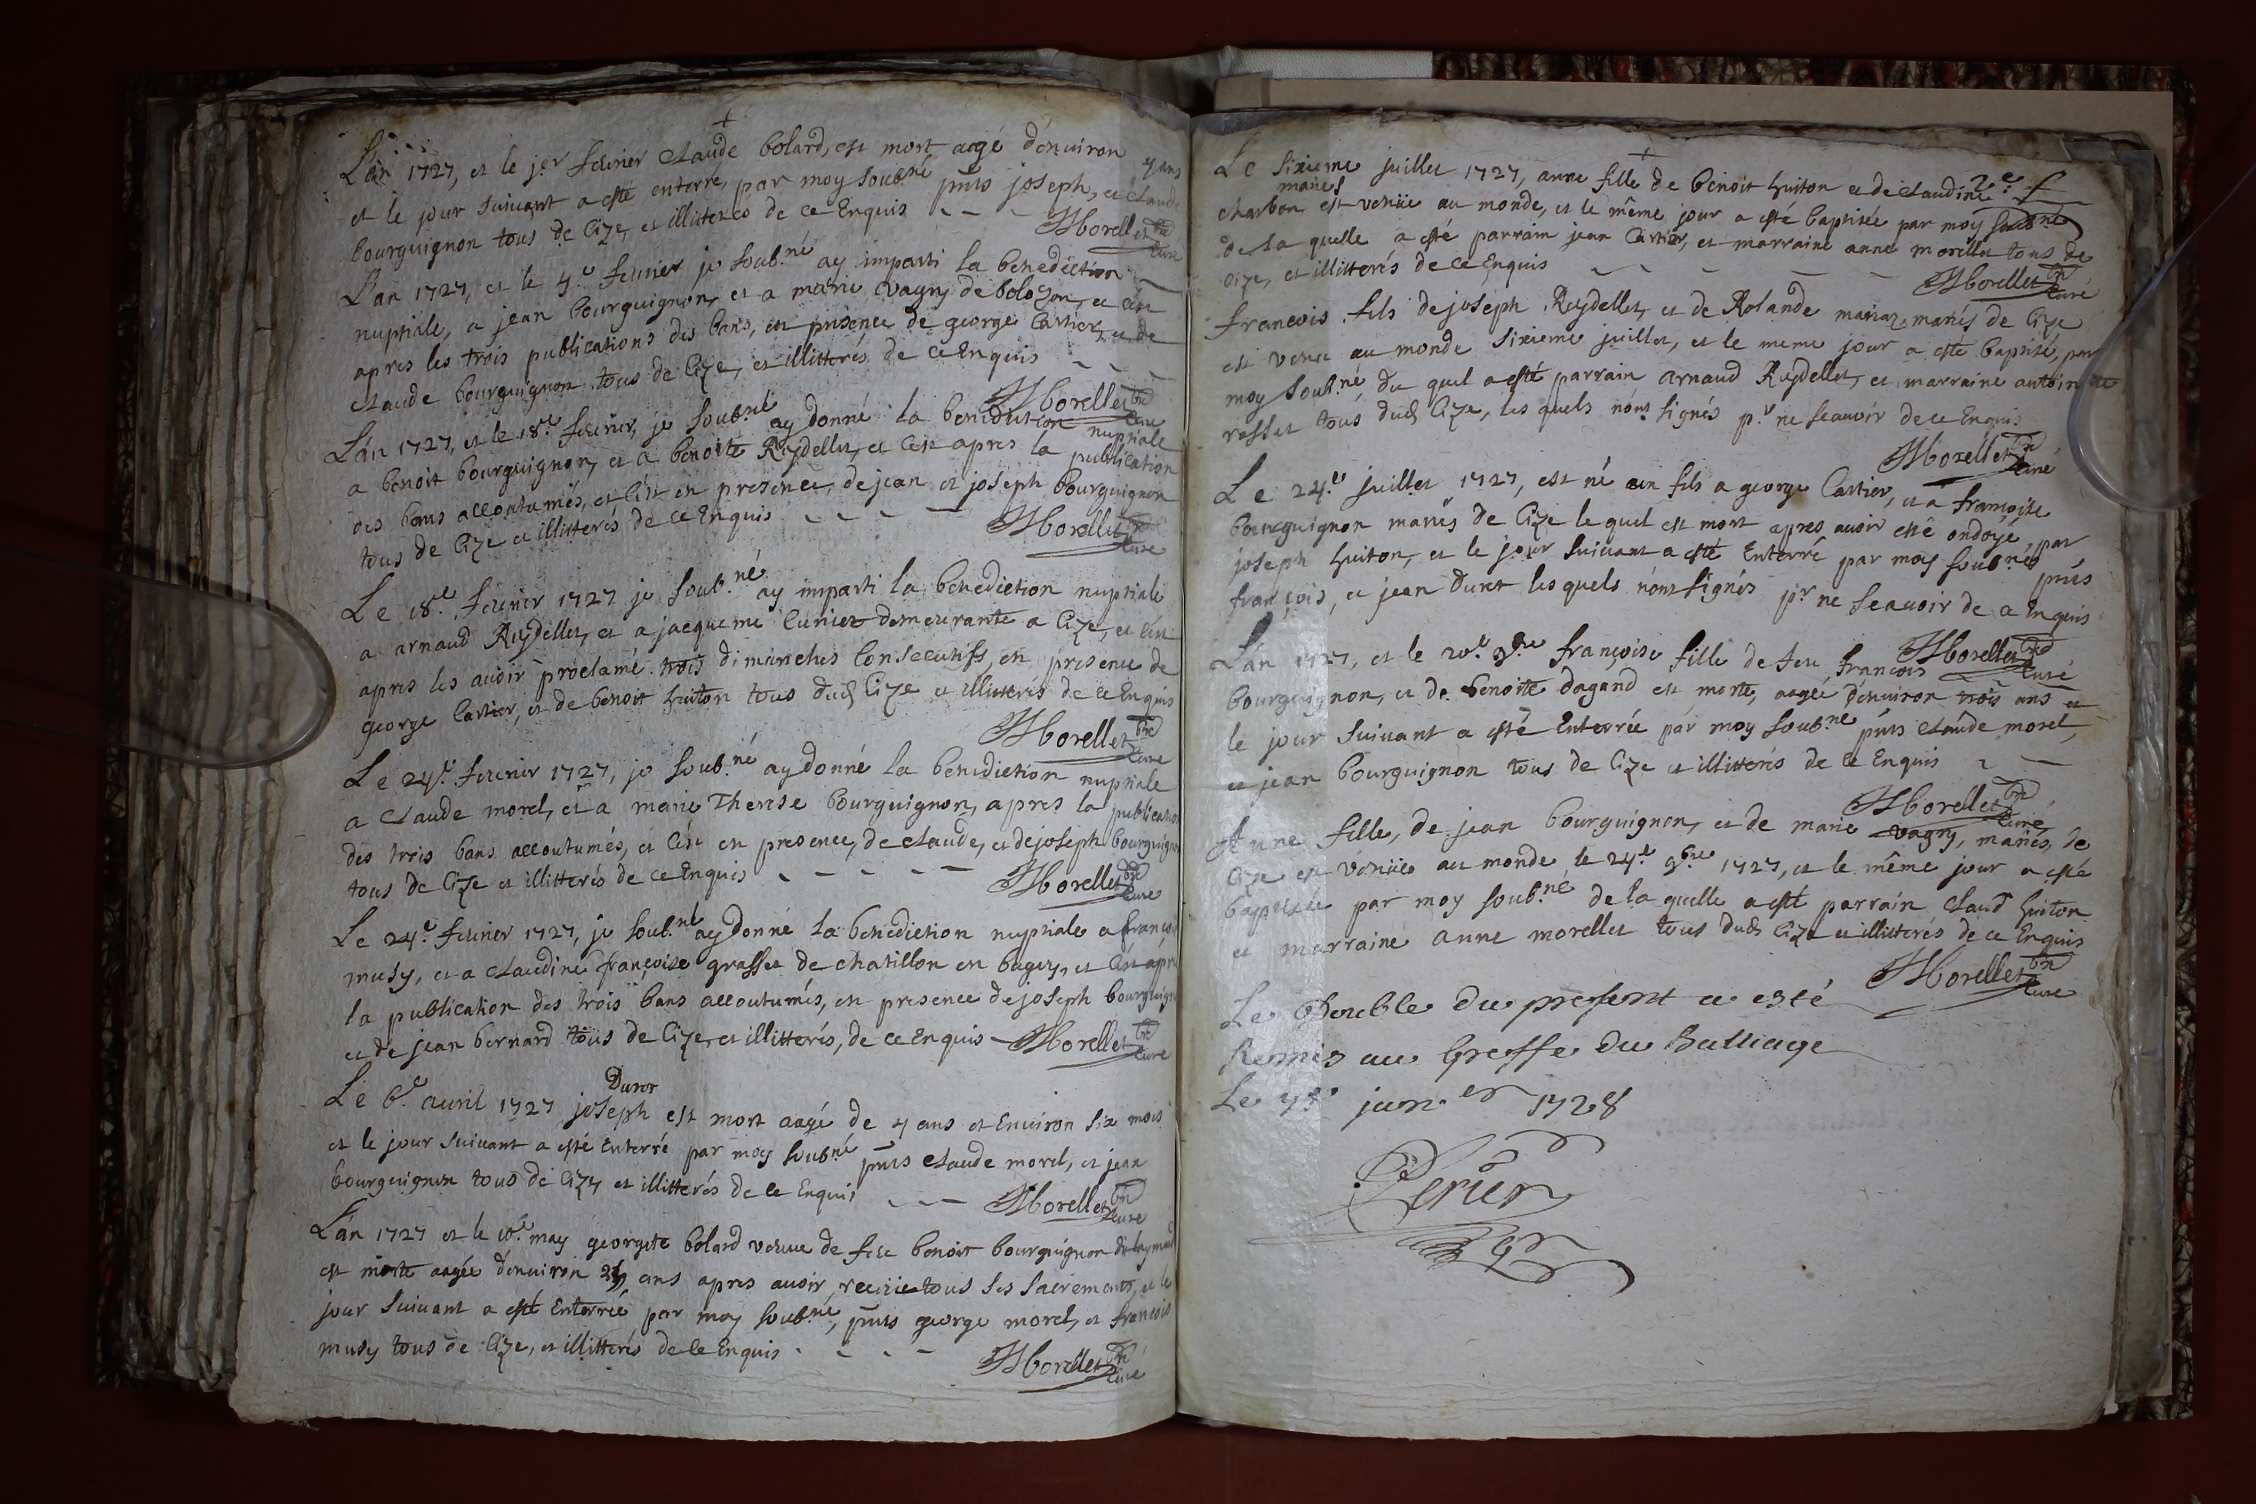 L'an 1727, et le jer feurier claude bolard, est mort agé d'enuiron 4 ans
et le jour suiuant a esté enterré, par moy soubné pnts joseph, et claude
bourguignon tous de Cize, et illiterés de ce Enquis
Morellet bre Curé
L'an 1727, et le 4e feurier je soubné ay imparti la benediction
nuptiale, a jean bourguignon, et a marie Vagny de bolozon, et c'est
apres les trois publications des bans, en présence de george Cartier, et de
claude bourguignon tous de Cize, et illitterés de ce Enquis
Morellet bre Curé
L'an 1727, et le 18e feurier, je soubné ay donné la benediction nuptiale
a benoit bourguignon, et a benoite Reydellet, et c'est apres la publication
des bans accoutumés, et c'est en presence, de jean et joséph bourguignon
tous de Cize et illitterés de ce Enquis
Morellet bre Curé
Le 18e feurier 1727 je soubné ay imparti la benediction nuptiale
a arnaud Reydellet, et a jacqueme Cuniet demeurante a Cize, et c'est
apres les auoir proclamé trois dimanches Consecutifs, en presence de
george Cartier, et de benoit huiton tous dud Cize et illitterés de ce Enquis
Morellet bre Curé
Le 24e feurier 1727, je soubné ay donné la benediction nuptiale
a claude morel, et a marie Therese bourguignon, apres la publication
des trois bans accoutumés, et c'est en presence, de claude, et de joseph bourguignon
tous de Cize et illitterés de ce Enquis
Morellet bre Curé
Le 24e feurier 1727, je soubné ay donné la benediction nuptiale a françois
musy, et a claudine françoise grasset de chatillon en bugey, et c'est apres
la publication des trois bans accoutumés, en presence de joseph bourguignon
et de jean bernard tous de Cize, et illitterés, de ce Enquis Morellet bre Curé
Duret
Le 6e auril 1727 joseph est mort aagé de 4 ans et Enuiron six mois
et le jour suiuant a esté Enterré par moy soubné pnts claude morel, et jean
bourguignon tous de Cize et illitterés de ce Enquis
Morellet bre Curé
L'an 1727 et le 10e may georgete bolard veuue de feu benoit bourguignon
est morte aagée d'enuiron ans apres auoir receüe tous ses sacrements, et le
jour suiuant a esté Enterrée par moy soubné, pnts george morel, et françois
musy tous de Cize, et illitterés de ce Enquis
Morellet bre Curé
Le sixieme juillet 1727, anne fille de benoit huiton et de claudine
mariés
charbon est venüe au monde, et le même jour a esté baptisée par moy soubné
de la quelle a esté parrain jean Cartier, et marraine anne morellet tous de
Cize, et illitterés de ce Enquis
Morellet bre Curé
francois fils de joséph Reydellet, et de Rolande mariés de Cize
est venu au monde sixieme juillet, et le meme jour a esté baptisé, par
moy soubné, du quel a esté parrain arnaud Reydellet, et marraine antoinette
rosset tous dud Cize, les quels n'ont signés pr ne scauoir de ce Enquis
Morellet bre Curé
Le 24e juillet 1727, est né un fils a george Cartier, et a françoise
bourguignon mariés de Cize le quel est mort apres auoir esté ondoyé, par
joseph huiton, et le jour suiuant a esté Enterré par moy soubné, pnts
françois, et jean Duret les quels n'ont signés pr ne scauoir de ce Enquis
Morellet bre Curé
L'an 1727, et le 20e 9bre françoise fille de feu francois
bourguignon, et de benoite dagand est morte, aagée d'enuiron trois ans et
le jour suiuant a esté Enterrée par moy soubné pnts claude morel,
et jean bourguignon tous de Cize et illitterés de ce Enquis
Morellet bre Curé
Anne fille, de jean bourguignon, et de marie vagny, mariés, de
Cize est venüe au monde le 24e 9bre 1727, et le même jour a esté
baptisée par moy soubné de la quelle a esté parrain claud huiton
et marraine anne morellet tous dud Cize et illitterés de ce Enquis
Morellet bre Curé
Le Double du present a esté
Remis au Greffe du Balliage
Le janer 1728
Perier